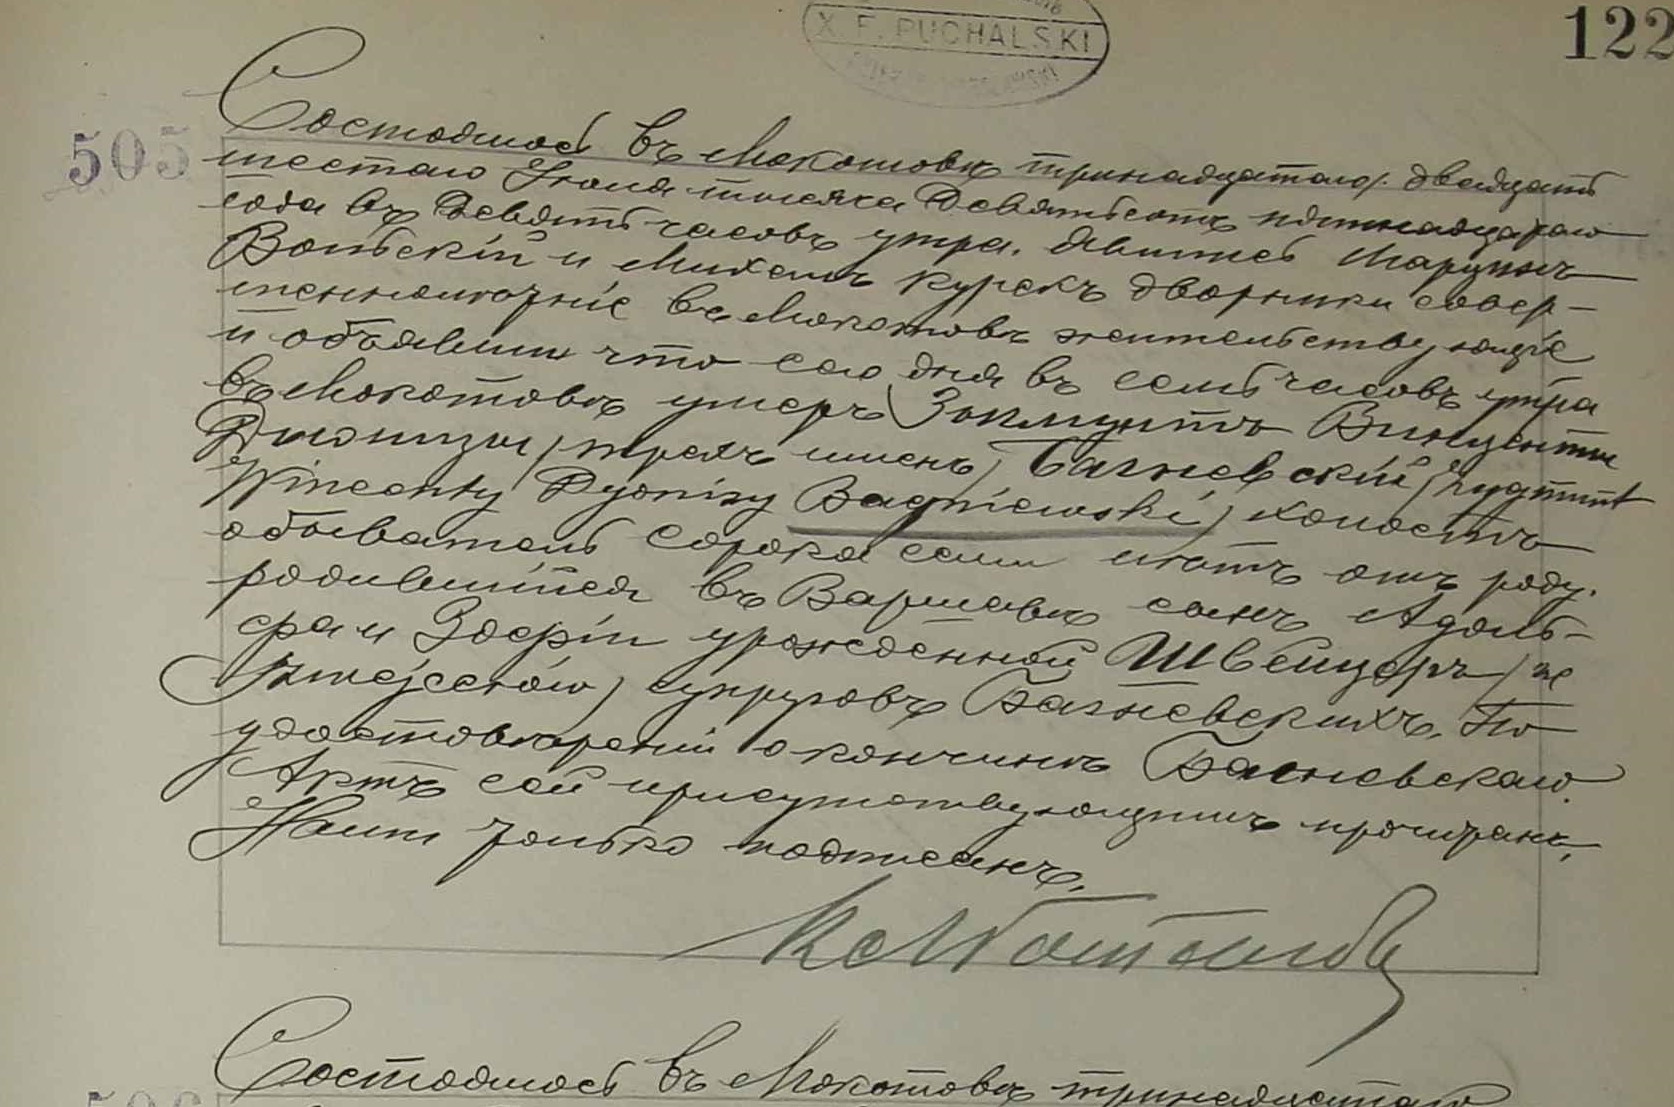 X. F. PUCHALSKI
122
505
Состоялось въ Мокотовѣ тринадцатаго/двадцать
шестаго Іюня тысяча девятьсотъ пятнадцатаго
года въ девять часовъ утра. Явились Марцинъ
Вольскій и Михалъ Курекъ дворники совер-
шеннолѣтніе въ Мокотовѣ жительствующіе
и объявили что сего дня въ семь часовъ утра
въ Мокотовѣ умеръ Зыгмунтъ Винценты
Діонизы (трехъ именъ) Багневскій (Zygmunt
Wincenty Dyonizy Bagniewski) холостъ
обыватель сорока семи лѣтъ отъ роду.
родившійся въ Варшавѣ сынъ Адоль-
фа и Зофіи урожденной Швейцеръ
супруговъ Багневскихъ. По
удостовѣреніи о кончинѣ Багневскаго.
Актъ сей присутствующимъ прочитанъ,
Нами только подписанъ.
Состоялось въ Мокотовѣ тринадцатаго
506